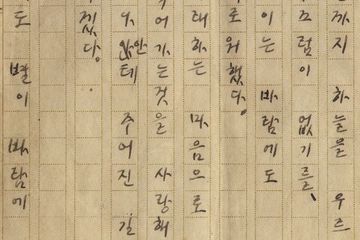 까지 하늘을 우르
끄럼이 없기를,
이는 바람에도
로워했다.
래하는 마음으로
어가는것을 사랑해
나안테 주어진 길
겠다.
도 별이 바람에